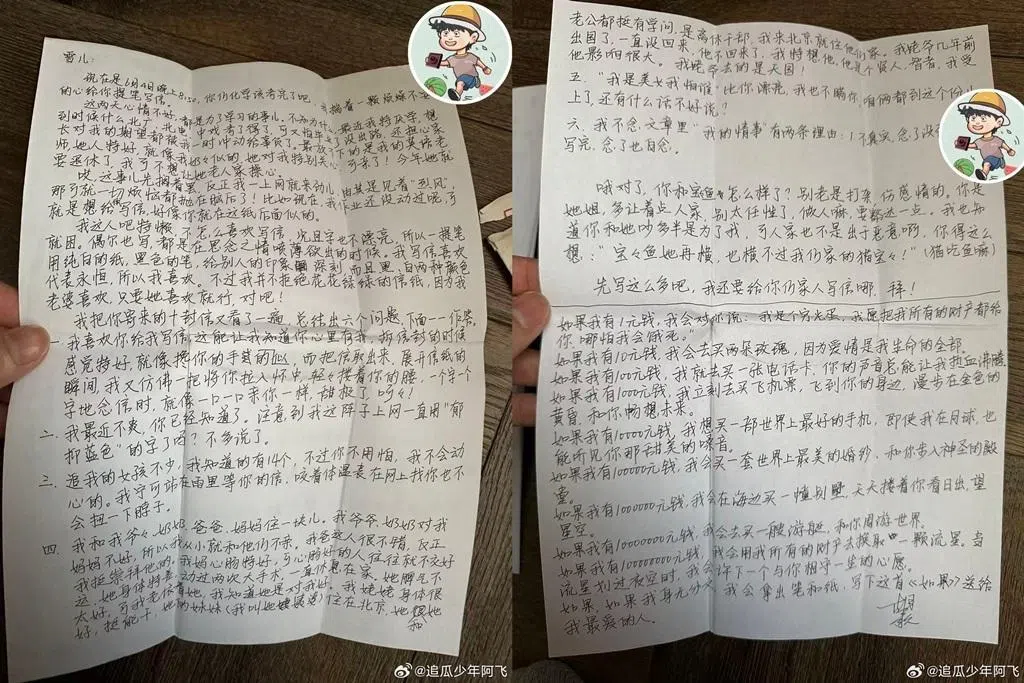 雪儿:
现在是6月4日晚上8:50,你们化学该考完了吧。我揣着一颗烦燥不安
的心给你提笔写信。
这两天心情不好,都是为了学习的事儿。不知为什么,最近我特厌学,想
到时候什么北广、北电、中戏考了得了,可又怕毕业后没出路,还担心家
长对我的期望都被我一时冲动给辜负了。最放不下的是我的英语老
师,她人特好,就像我奶奶似的,她对我特别关心,可来了!今年她就
要退休了,我可不想让她老人家操心。
哎,这事儿先搁着罢,反正我一上网就来劲儿,尤其是见着"烈风"
那可就一切烦恼都抛在脑后了!比如说现在,我作业还没动过呢,可
就是想给你写信,好像你就在这纸后面似的。
我这人吧特懒,不怎么喜欢写信,况且字也不漂亮,所以一提笔
就困。偶尔也写,都是在思念之情喷薄欲出的时候。我写信喜欢
用纯白的纸,黑色的笔,给别人的印象深刻,而且黑、白两种颜色
代表永恒,所以我喜欢。不过我并不拒绝花花绿绿的信纸,因为我
老婆喜欢,只要她喜欢就行,对吧!
我把你寄来的十封信又看了一遍,总结出六个问题,下面一一作答。
一、我喜欢你给我写信,这能让我知道你心里有我,拆信封的时候
感觉特好,就像撩你的手袋的, 而把信取出来,展开信纸的
瞬间,我又仿佛一把将你拉入怀中,轻轻搂着你的腰,一个字一个
字地念信时,就像一口一口亲你一样,甜极了,呵呵!
二、我最近不爽,你已经知道了。注意到我这阵子上网一直用"郁
抑蓝色"的字了吗?不多说了。
三、追我的女孩不少,我知道的有14个,不过你不用怕,我不会动
心的。我宁可站在雨里等你的信,咬着体温表在网上找你也不
会扭一下脖子。
四、我和我爷爷、奶奶、爸爸、妈妈住一块儿。我爷爷、奶奶对我
妈妈不好,所以我从小就和他们不亲。我爸这人很不错,反正
我挺崇拜他的。我妈心肠特好,可心肠好的人往往就不交好
运,她身体特差,动过两次大手术,一直休息在家,她脾气不
太好,可我老依着她,我知道她是对我好。我姥姥身体很
好,挺能干,她的妹妹(我叫她姨姥姥)住在北京,她跟她
和
老公都挺有学问,是离休干部,我来北京就住他们家。我姥爷几年前
出国了,一直没回来,他不回来了,我特想他,他是个贤人、智者,我受
他影响很大。我姥爷去的是天国!
五、"我是美女我怕谁"比你漂亮,我也不瞒你,咱俩都到这个份儿
上了,还有什么话不好说?
六、我不念文章里"我的情事"有两条理由:1不真实,念了没
写完,念了也白念。
哦对了,你和宝鱼怎么样了?别老是打架,伤感情的。你是
她姐,多让着点人家,别太任性了,做人嘛,豁达一点。我也知
道你和她吵多半是为了我,可人家也不是出于恶意啊,你得这么
想:"宝宝鱼她再横,也横不过我们家的猫宝宝!"(猫吃鱼嘛)
先写这么多吧,我还要给你们家人写信哪,拜!
如果我有1元钱,我会对你说:我是个穷光蛋,我愿把我所有的财产都给
你,哪怕我会饿死。
如果我有10元钱,我会去买两朵玫瑰,因为爱情是我生命的全部。
如果我有100元钱,我就去买一张电话卡,你的声音总能让我热血沸腾。
如果我有1000元钱,我立刻去买飞机票,飞到你的身边,漫步在金色的
黄昏,和你畅想未来。
如果我有10000元钱,我想买一部世界上最好的手机,即使我在月球,也
能听见你那甜美的嗓音。
如果我有100000元钱,我会买一套世界上最美的婚纱,和你步入神圣的殿
堂。
如果我有1000000元钱,我会在海边买一幢别墅,天天搂着你看日出,望
星空。
如果我有10000000元钱,我会去买一艘游艇,和你周游世界。
如果我有100000000元钱,我会用我所有的财产去换取一颗流星,当
流星划过夜空时,我会许下一个与你相守一生的心愿。
如果,如果我身无分文,我会拿出笔和纸,写下这首《如果》送给
我最爱的人。
@追瓜少年阿飞
@追瓜少年阿飞